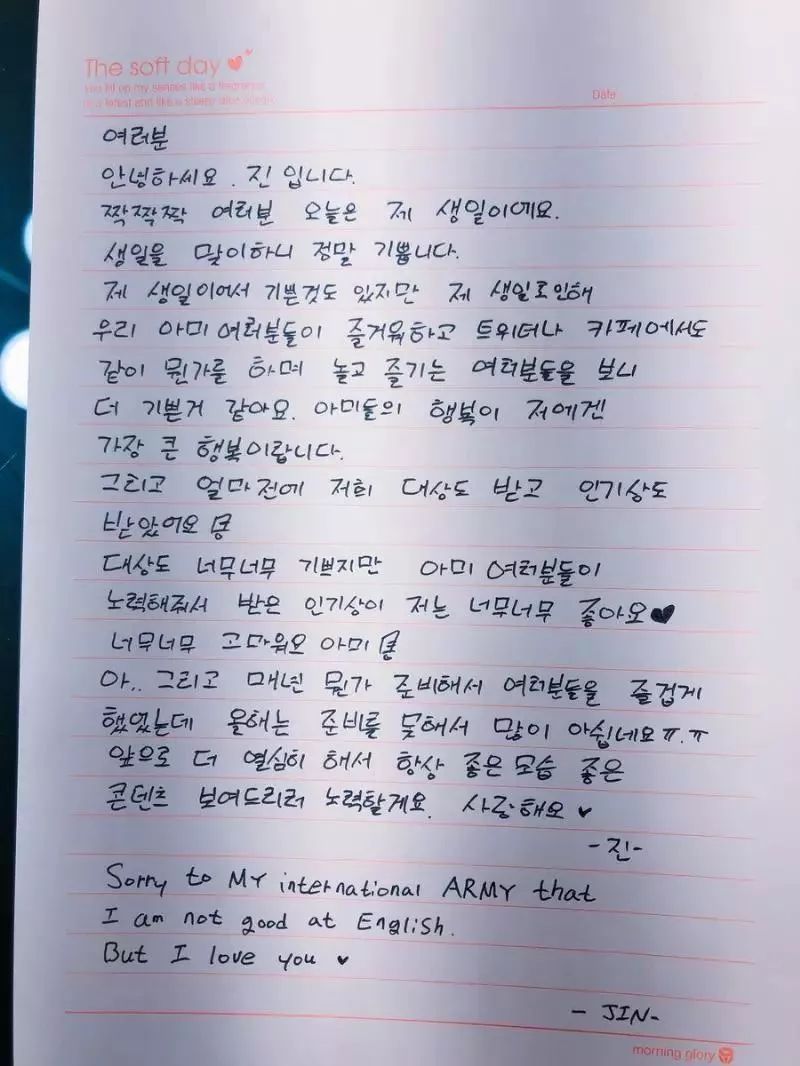 The soft day
Date
여러분
안녕하세요. 진 입니다.
짝짝짝 여러분 오늘은 제 생일이에요.
생일을 맞이하니 정말 기쁩니다.
제 생일이어서 기쁜것도 있지만 제 생일로인해
우리 아미여러분들이 즐거워하고 트위터나 카페에서도
같이 뭔가를 하며 놀고 즐기는 여러분들을 보니
더 기쁜거 같아요. 아미들의 행복이 저에겐
가장 큰 행복이랍니다.
그리고 얼마전에 저희 대상도 받고 인기상도
받았어요
대상도 너무너무 기쁘지만 아미 여러분들이
노력해줘서 받은 인기상이 저는 너무너무 좋아요♥
너무너무 고마워요 아미
아.. 그리고 매년 뭔가 준비해서 여러분들을 즐겁게
했었는데 올해는 준비를 못해서 많이 아쉽네요ㅠ.ㅠ
앞으로 더 열심히 해서 항상 좋은 모습 좋은
콘텐츠 보여드리러 노력할게요. 사랑해요 ♥
-진-
Sorry to MY international ARMY that
I am not good at English.
But I love you ♥
- JIN-
morning glory